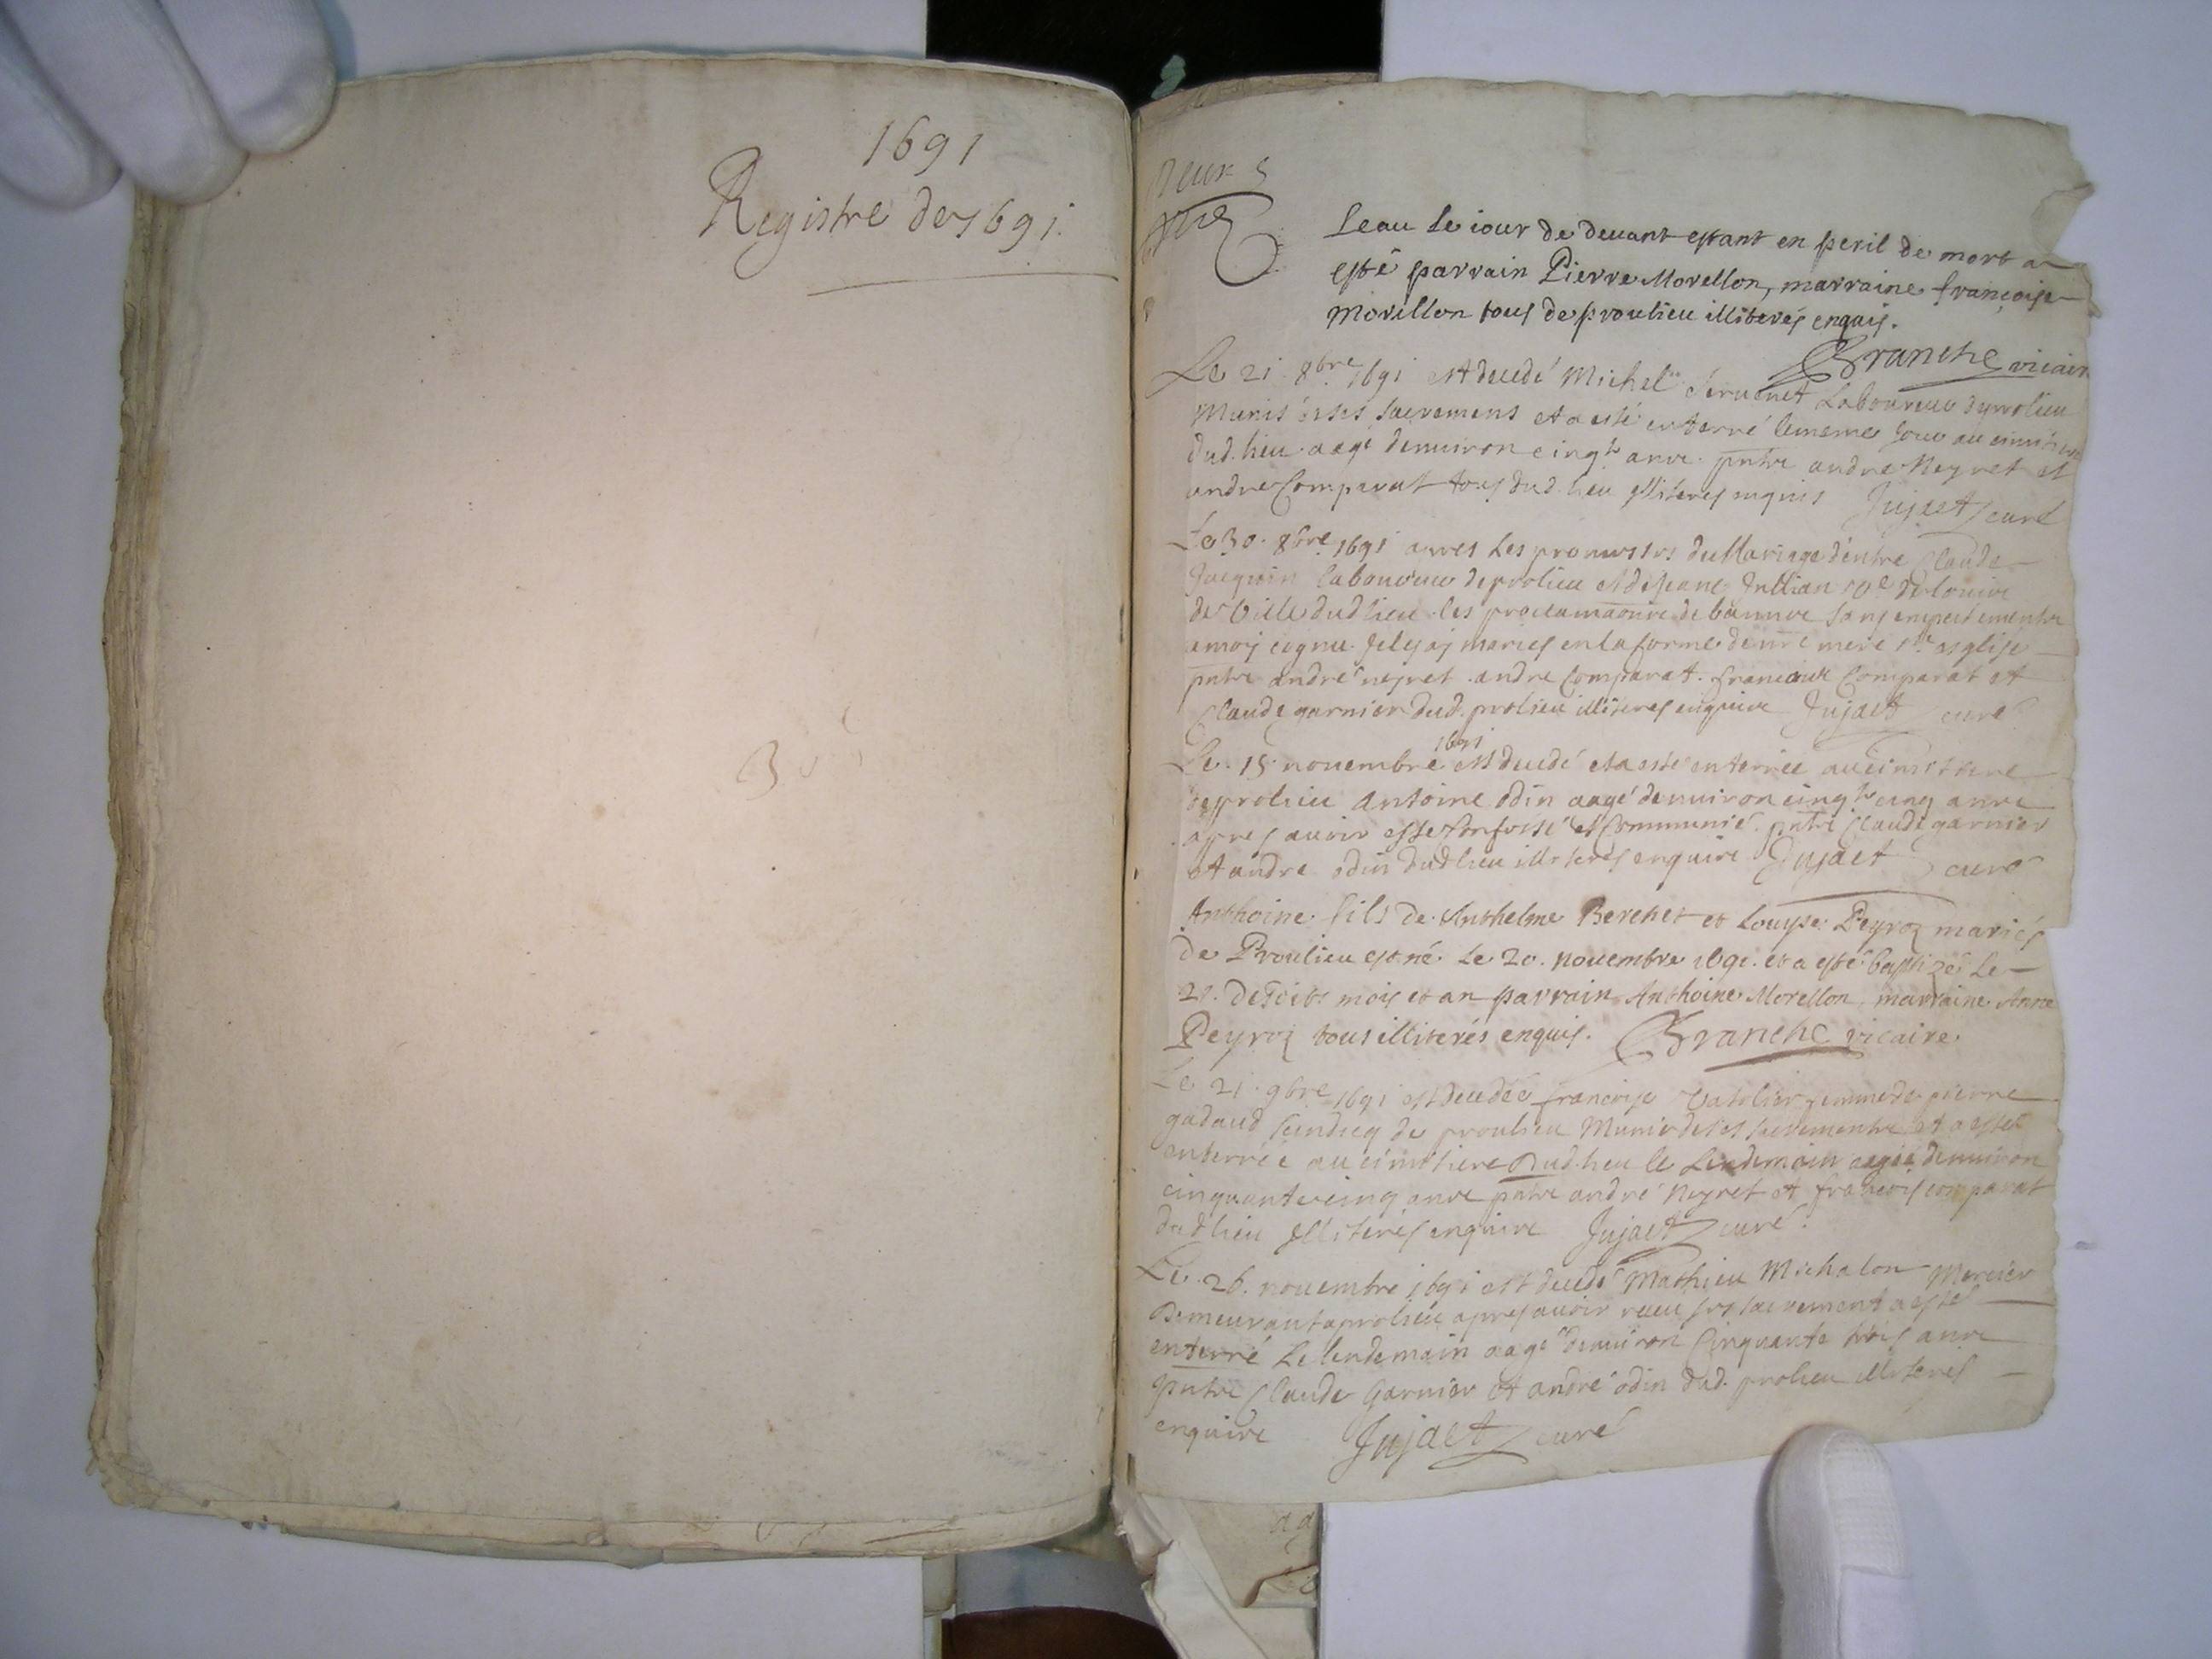 1691
Registre de 1691.
deux
leau le iour de deuant estant en peril de mort a
esté parrain Pierre Morellon, marraine françoise
Morellon tous de proulieu illiterés enquis.
Branche vicaire
Le 21 8bre 1691 est decedé Michel Seruonet Laboureur de prolieu
Munis de ses sacremens et a esté enterré le meme jour au cimitiere
dud. lieu aagé denuiron cinq.te ans. pnts andre Neyret et
andre Comparat tous dud. lieu illiteres enquis Jujaet curé
Le 30. 8bre 1691 apres les promesses du Mariage dentre Claude
Jacquin laboureur de prolieu et de Jeane Jullian
de Ville dud lieu les proclamaons de bannes sans empeschements
a moy cognu je les aj mariés en la forme de nre mere ste esglise
pnts andré nejret andre Comparat. francois Comparat et
Claude garnier dud. prolieu illiteres enquis Jujaet curé
Le 15 nouembre 1691 est decedé et a esté enterrée au cimittiere
de prolieu Antoine odin aagé denuiron cinq.te cinq ans
apres auoir esté Confessé et Communié. pnts Claude garnier
et andre odin dud lieu illiterés enquis Jujaet curé
Anthoine fils de Anthelme Berchet et Louyse Peyroz mariés
de Proulieu est né le 20. nouembre 1691. et a esté baptizé le
21. desdits mois et an parrain Anthoine Morellon, marraine Anne
Peyroz tous illiterés enquis. Branche vicaire.
Le 21. 9bre 1691 est decedée françoise femme de pierre
gadaud scindicq de proulieu Munie de ses sacrements et a esté
enterrée au cimitiere dud. lieu le lendemain aagée denuiron
cinquante cinq ans pnts andré Neyret et françois comparat
dud lieu illiterés enquis Jujaet curé.
Le 26. nouembre 1691 est decedé Mathieu Michalon Mercier
Demeurant a prolieu apres auoir receu ses sacrement a esté
enterré le lendemain aagé denuiron Cinquante trois ans
pnts Claude Garnier et andré odin dud. prolieu illiterés
enquis Jujaet curé